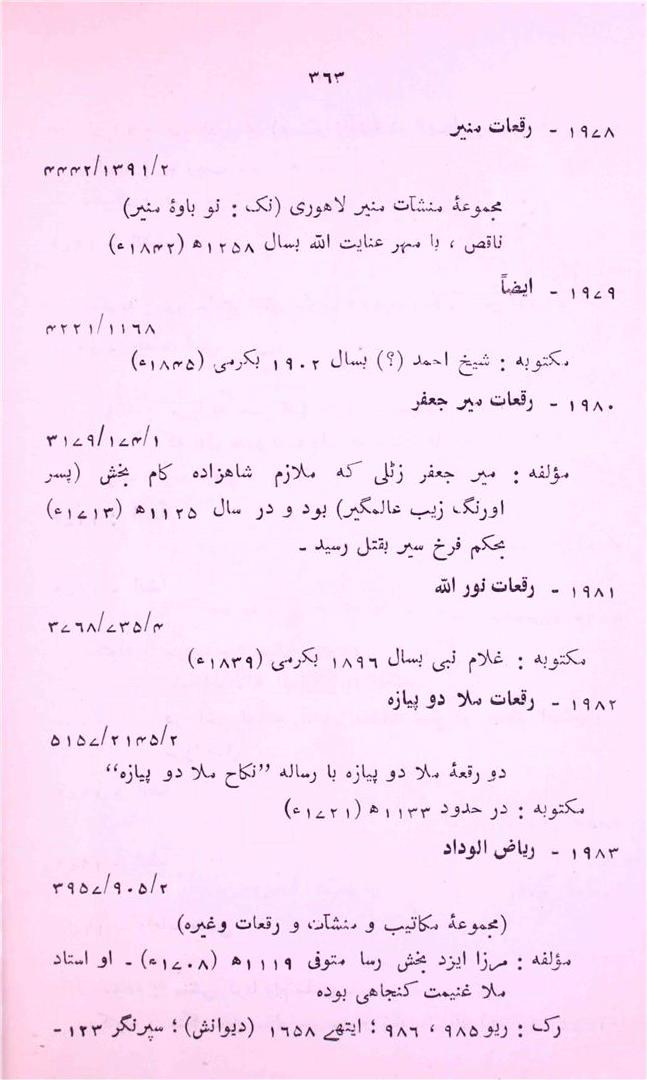 ۳۶۳
۱۹۷۸ - رقعات منیر
۴۴۴۲/۱۳۹۱/۲
مجموعهٔ منشآت منیر لاهوری (نک : نو باوهٔ منیر)
ناقص ، با مهر عنایت الله بسال ۱۲۵۸ھ (۱۸۴۲ء)
۱۹۷۹ - ایضاً
۴۲۲۱/۱۱۶۸
مکتوبه : شیخ احمد (؟) بسال ۱۹۰۲ بکرمی (۱۸۴۵ء)
۱۹۸۰ - رقعات میر جعفر
۳۱۷۹/۱۷۴/۱
مؤلفه : میر جعفر زٹلی که ملازم شاهزاده کام بخش (پسر
اورنگ زیب عالمگیر) بود و در سال ۱۱۲۵ھ (۱۷۱۳ء)
بحکم فرخ سیر بقتل رسید -
۱۹۸۱ - رقعات نور الله
۳۷۶۸/۷۳۵/۴
مکتوبه : غلام نبی بسال ۱۸۹۶ بکرمی (۱۸۳۹ء)
۱۹۸۲ - رقعات ملا دو پیازه
۵۱۵۷/۲۱۴۵/۲
دو رقعهٔ ملا دو پیازه با رساله ”نکاح ملا دو پیازه“
مکتوبه : در حدود ۱۱۳۳ھ (۱۷۲۱ء)
۱۹۸۳ - ریاض الوداد
۳۹۵۷/۹۰۵/۲
(مجموعهٔ مکاتیب و منشآت و رقعات وغیره)
مؤلفه : مرزا ایزد بخش رسا متوفی ۱۱۱۹ھ (۱۷۰۸ء) - او استاد
ملا غنیمت کنجاهی بوده
رک : ریو ۹۸۵ ، ۹۸۶ ؛ ایتھے ۱۶۵۸ (دیوانش) ؛ سپرنگر ۱۲۳ -